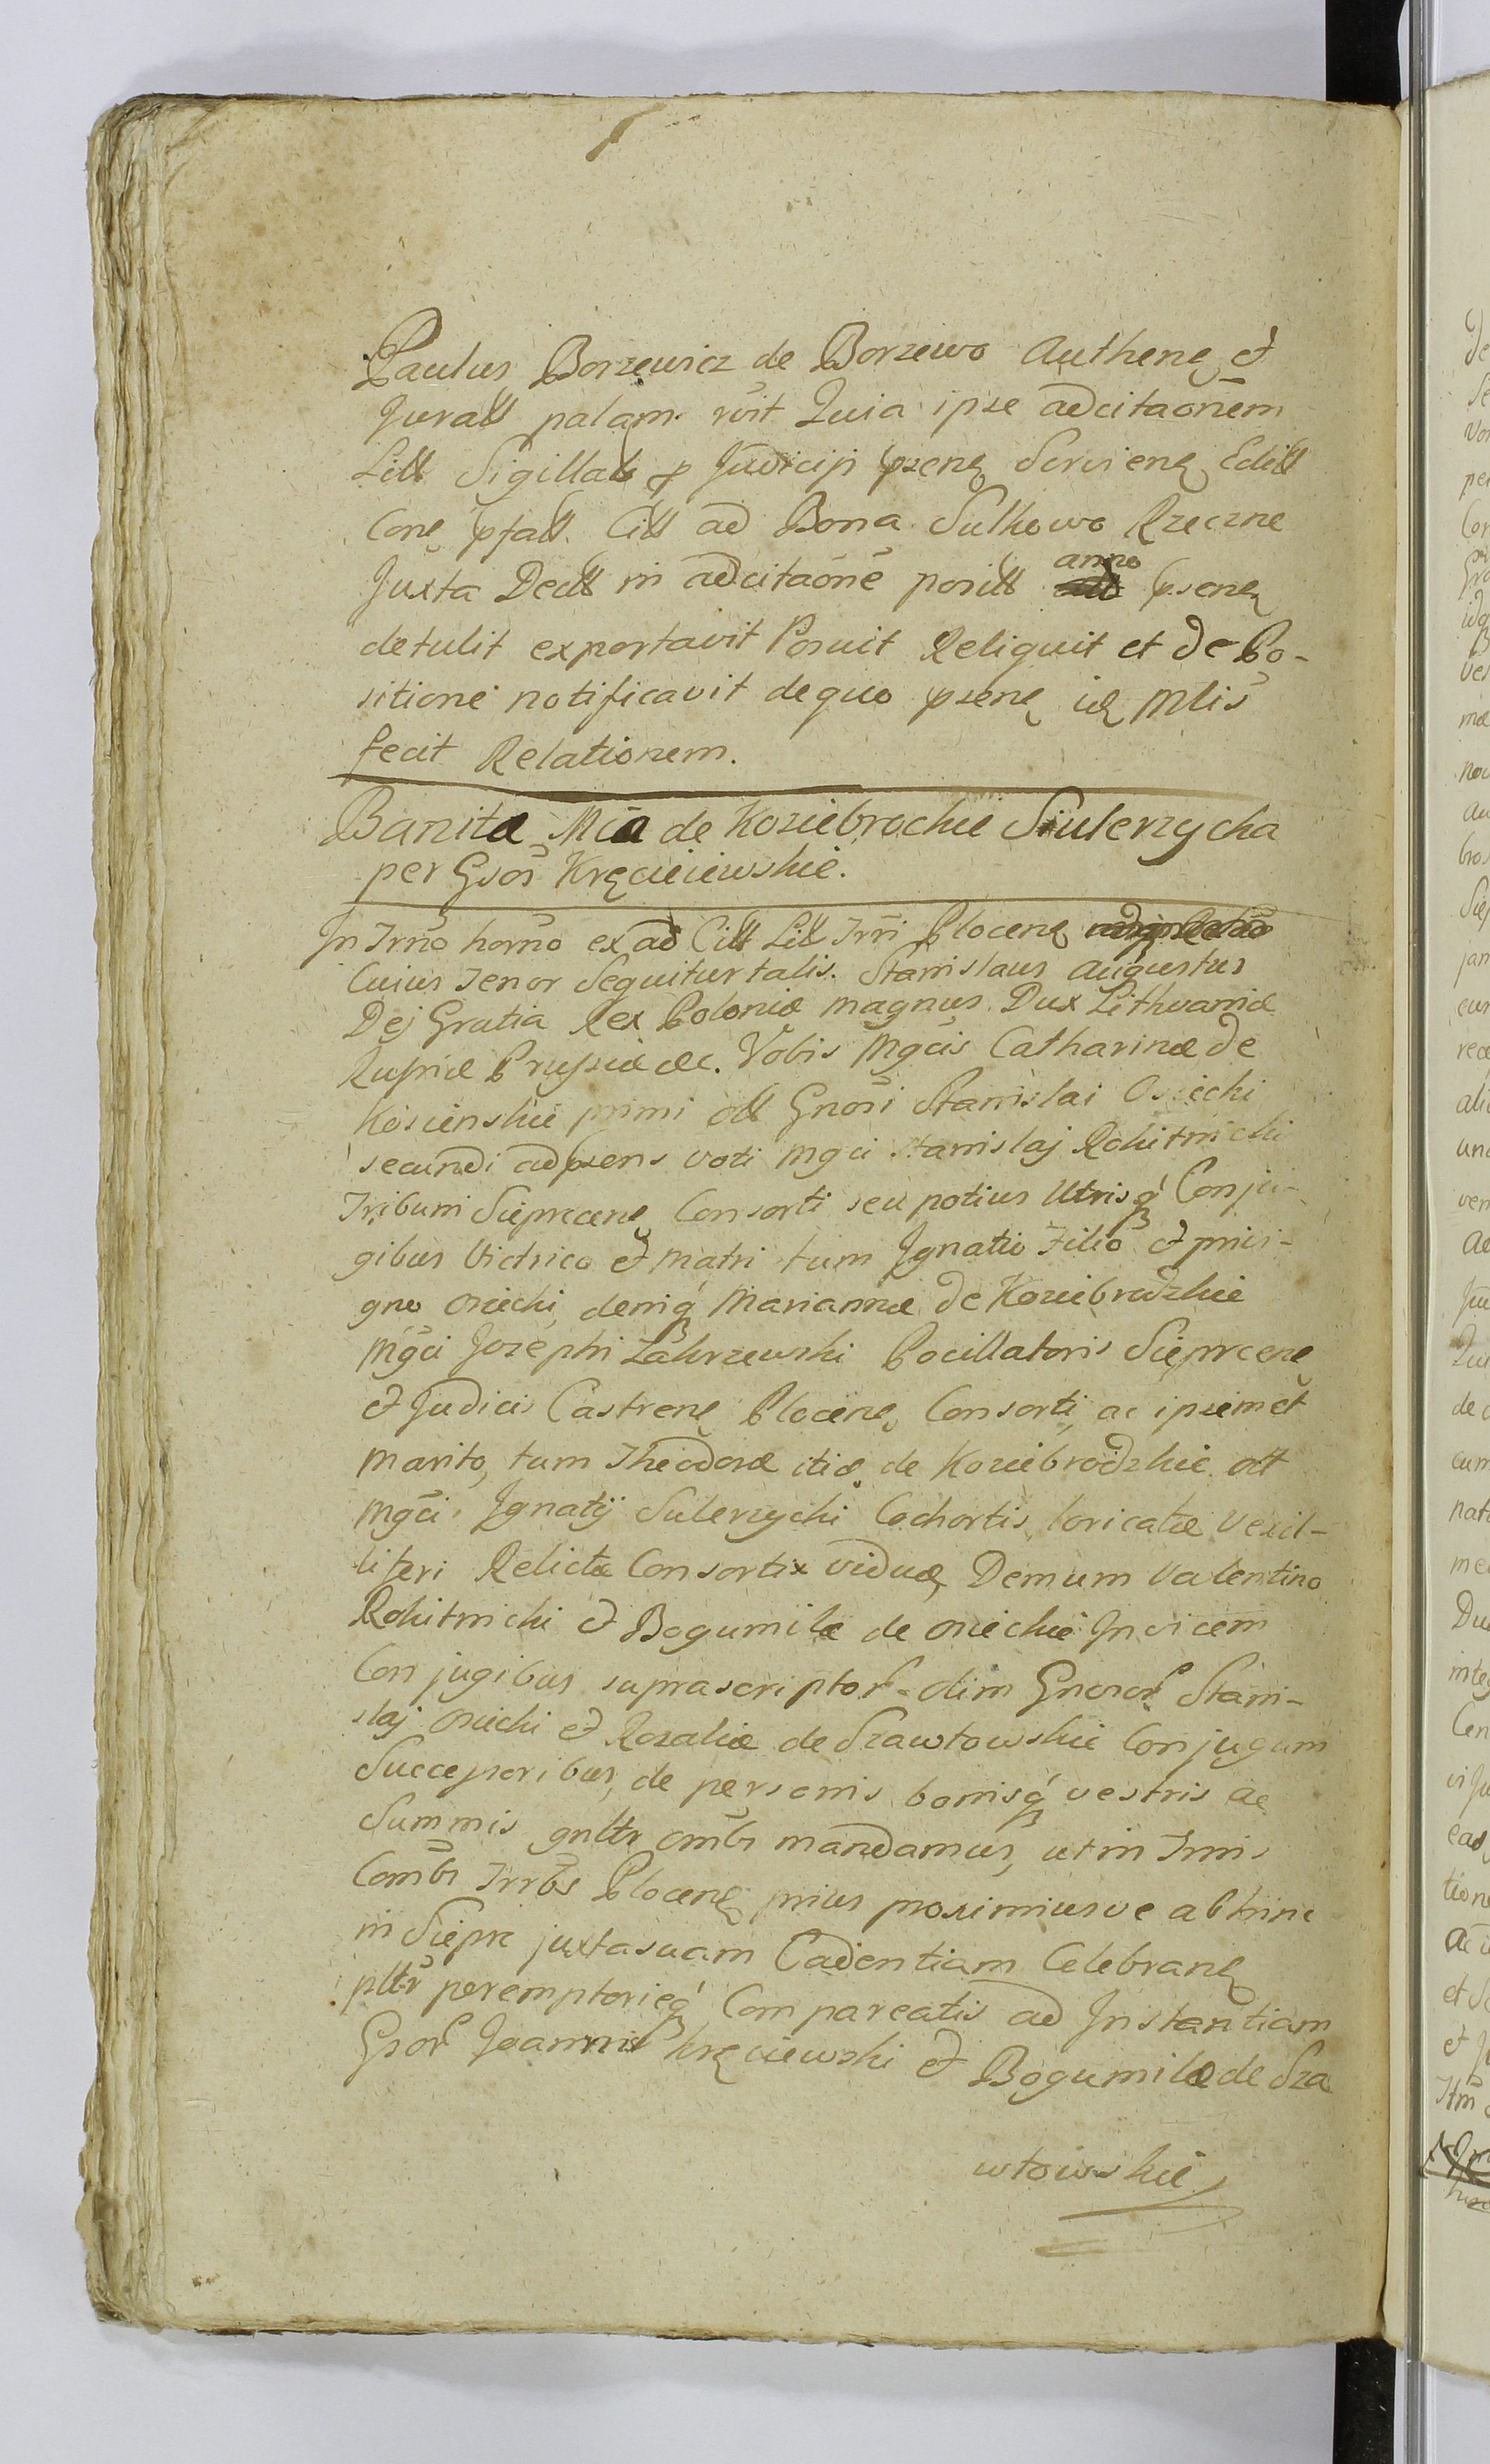 Paulus Borzewicz de Borzewo Authenꝫ et
Juratt palam rōit Quia ipse adcitaōnem
Litt Sigillatt p Judicij psenꝫ Servienꝫ Editt
Conꝫ pfatt. Citt ad Bona Sulkowo Rzeczne
Juxta Decttt in adcitaōnē positt anno psenꝫ
detulit exportavit Posuit Reliquit et de Po-
sitione notificavit de quo psenꝫ idꝫ Mlis
fecit Relationem.
Banitæ Mcia de Koziebrockie Siulerzycka
per Gsos Kręcieiewskie.
In Trno horno ex ad Citt Litt Trri Plocenꝫ
Cuius Tenor Sequitur talis. Stanislaus Augustus
Dej Gratia Rex Poloniæ magnus Dux Lithvaniæ
Russiæ Prussiæ &c. Vobis Mgcis Catharinæ de
Kosienskie primi ott Gnosi Stanislai Osiecki
secundi adpsens voti Mgci Stanislaj Rokitnicki
Tribuni Sieprcenꝫ Consorti seu potius Utrisq́ Conju-
gibus Victrico et Matri tum Ignatio Filio et privi-
gno Osiecki, deniq́ Mariannæ de Koziebrodzkie
Mgci Josephi Zakrzewski Pocillatoris Sieprcenꝫ
et Judicis Castrenꝫ Plocenꝫ Consorti, ac ipsimet
Marito, tum Theodoræ itiꝫ de Koziebrodzkie ott
Mgci Ignatij Sulerzycki Cohortis loricatæ Vexil-
liferi Relictæ Consortix viduæ, Demum Valentino
Rokitnicki et Bogumilæ de Osieckie Invicem
Conjugibus suprascriptor olim Gnosor Stani-
slaj Osiecki et Rozaliæ de Szawtowskie Conjugum
Successoribus, de personis bonisq́ vestris ac
Summis gnlttr omībs mandamus, ut in Trnis
Comībs Trrbs Plocenꝫ prius proximiusve abhinc
in Sieprc juxta suam Cadentiam Celebranꝫ
plttr peremptorieq́ Compareatis ad Instantiam
Gsor Joannis Kręciewski et Bogumilæ de Sza
wtowskie